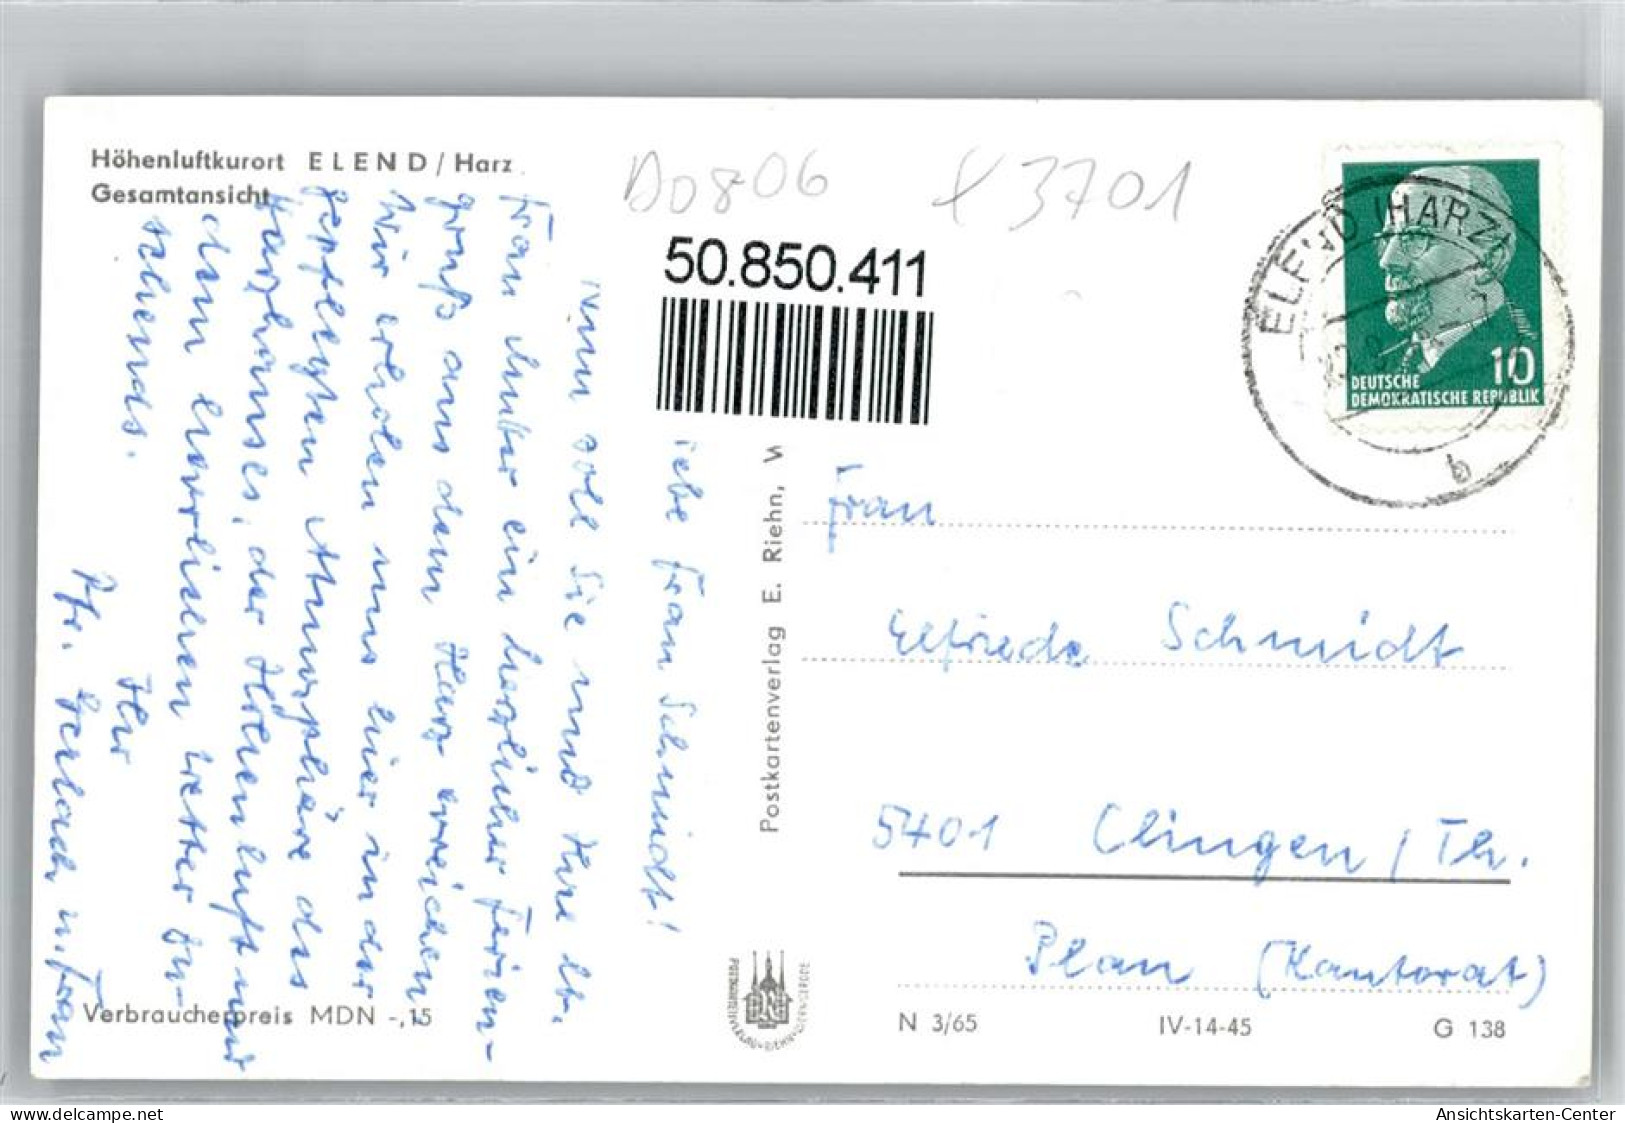 Höhenluftkurort ELEND / Harz
Gesamtansicht
D0806
3701
50.850.411
ELEND (HARZ)
b
10
DEUTSCHE
DEMOKRATISCHE REPUBLIK
iebe Frau Schmidt!
Nun soll Sie und Ihre lb.
Frau Mutter ein herzlicher Ferien-
gruß aus dem Harz erreichen.
Wir erholen uns hier in der
gepflegten Atmosphäre des
Harzhauses, der Höhenluft und
dem herrlichen Wetter zu-
sehends.
Ihr
Pfr. Gerlach u. Frau
Postkartenverlag E. Riehn, W
Frau
Elfriede Schmidt
5401 Clingen / Th.
Plan (Kantorat)
Verbraucherpreis MDN -,15
N 3/65
IV-14-45
G 138
oldthing.de
Ansichtskarten-Center